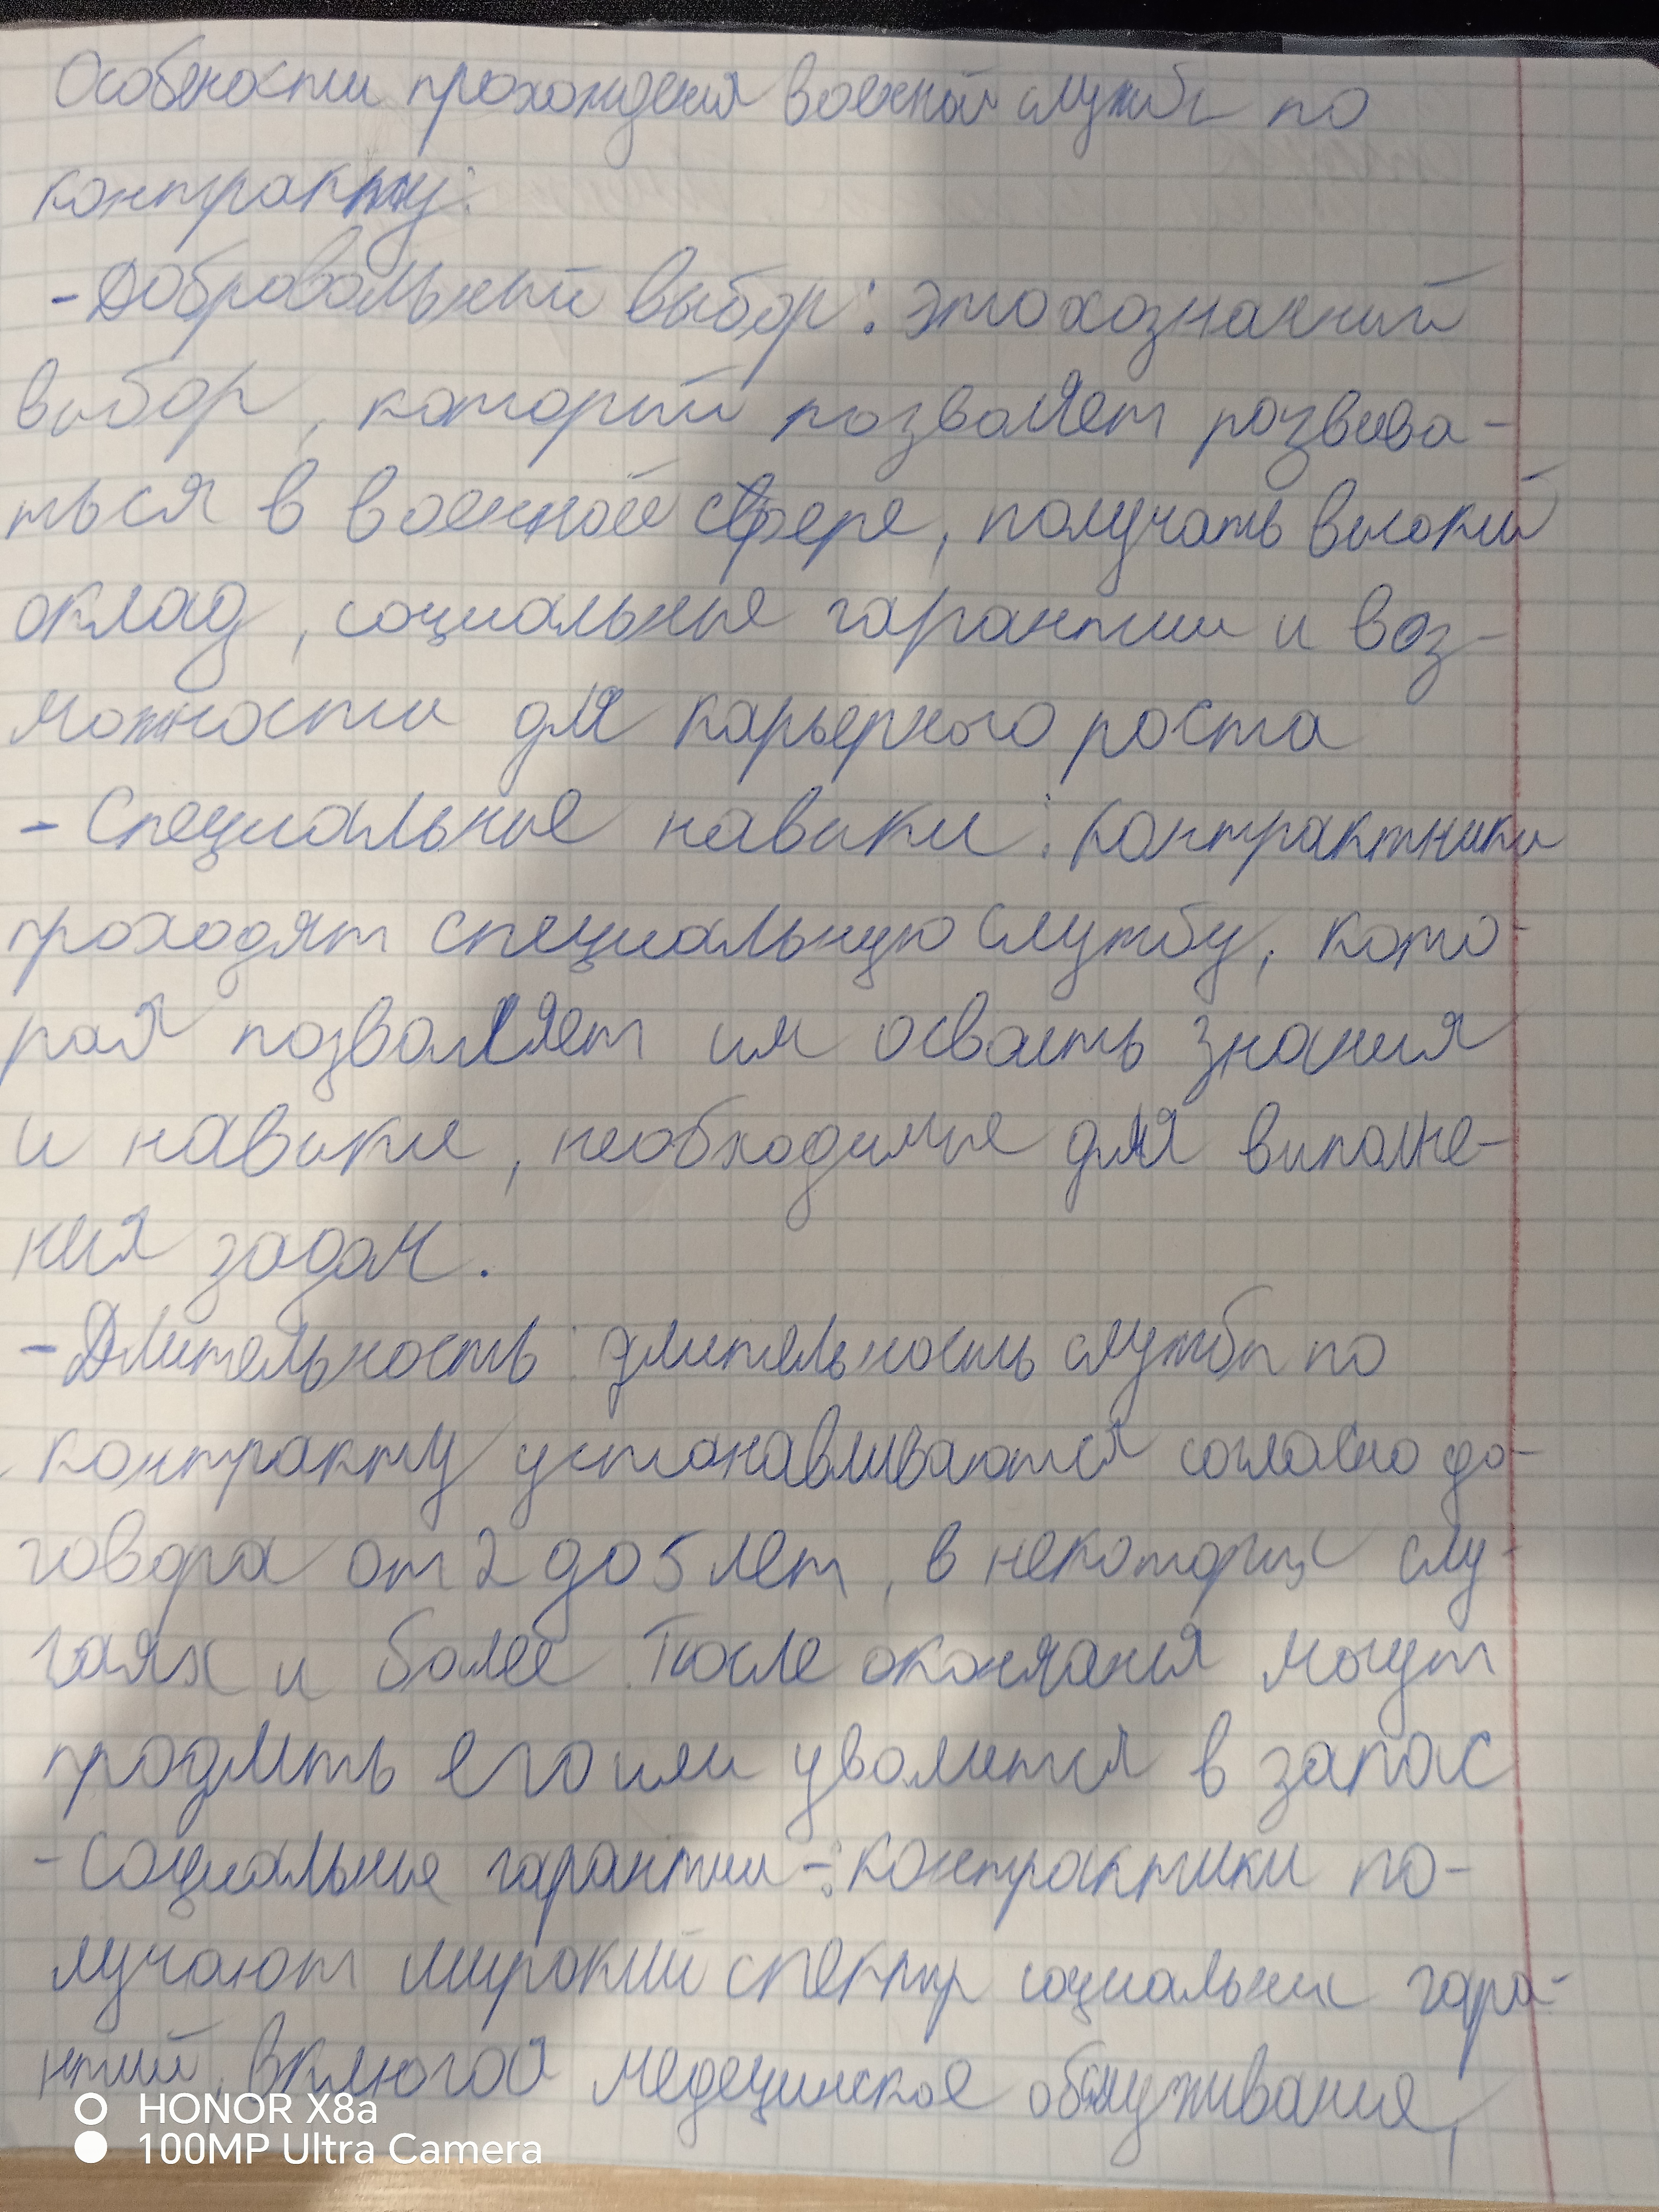 Особености прохождения военной службы по
контракту:
- Добровольный выбор: это хозначий
выбор, который позволяет розвива-
ться в военной сфере, получать високий
оклад, социальные гарантии и воз-
можности для карьерного роста
- Специальные навики: контрактники
проходят специальную службу, кото-
рая позволяет им осваеть знания
и навики, необходимые для виполне-
ния задач.
- Длительность: длительность службы по
контракту устанавливаются согласно до-
говора от 2 до 5 лет, в некоторих слу-
чаях и более. После окончания могут
продлить его или уволится в запас
- Социальные гарантии -: контрактики по-
лучают широкий спектр социальных гара-
нтий, включая медецинское обслуживание,
HONOR X8a
100MP Ultra Camera